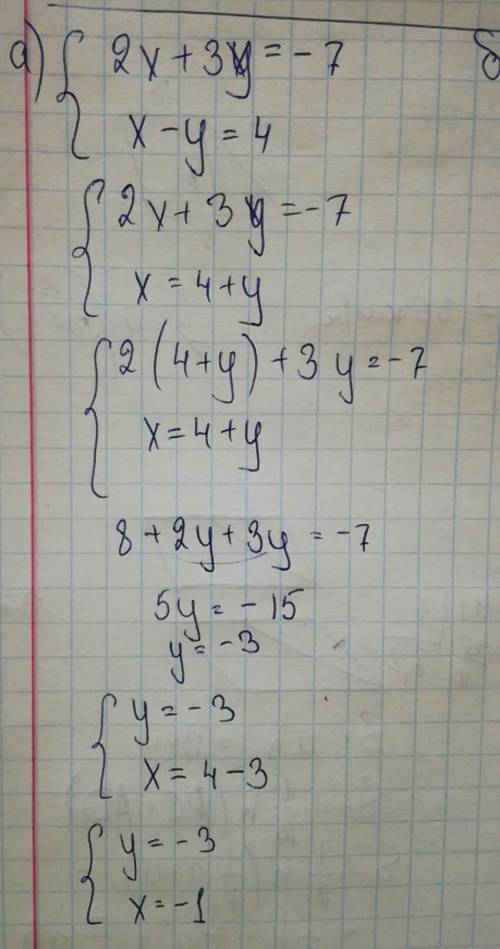 а) { 2x + 3y = -7
x - y = 4
{ 2x + 3y = -7
x = 4 + y
{ 2 (4 + y) + 3y = -7
x = 4 + y
8 + 2y + 3y = -7
5y = -15
y = -3
{ y = -3
x = 4 - 3
{ y = -3
x = -1
б